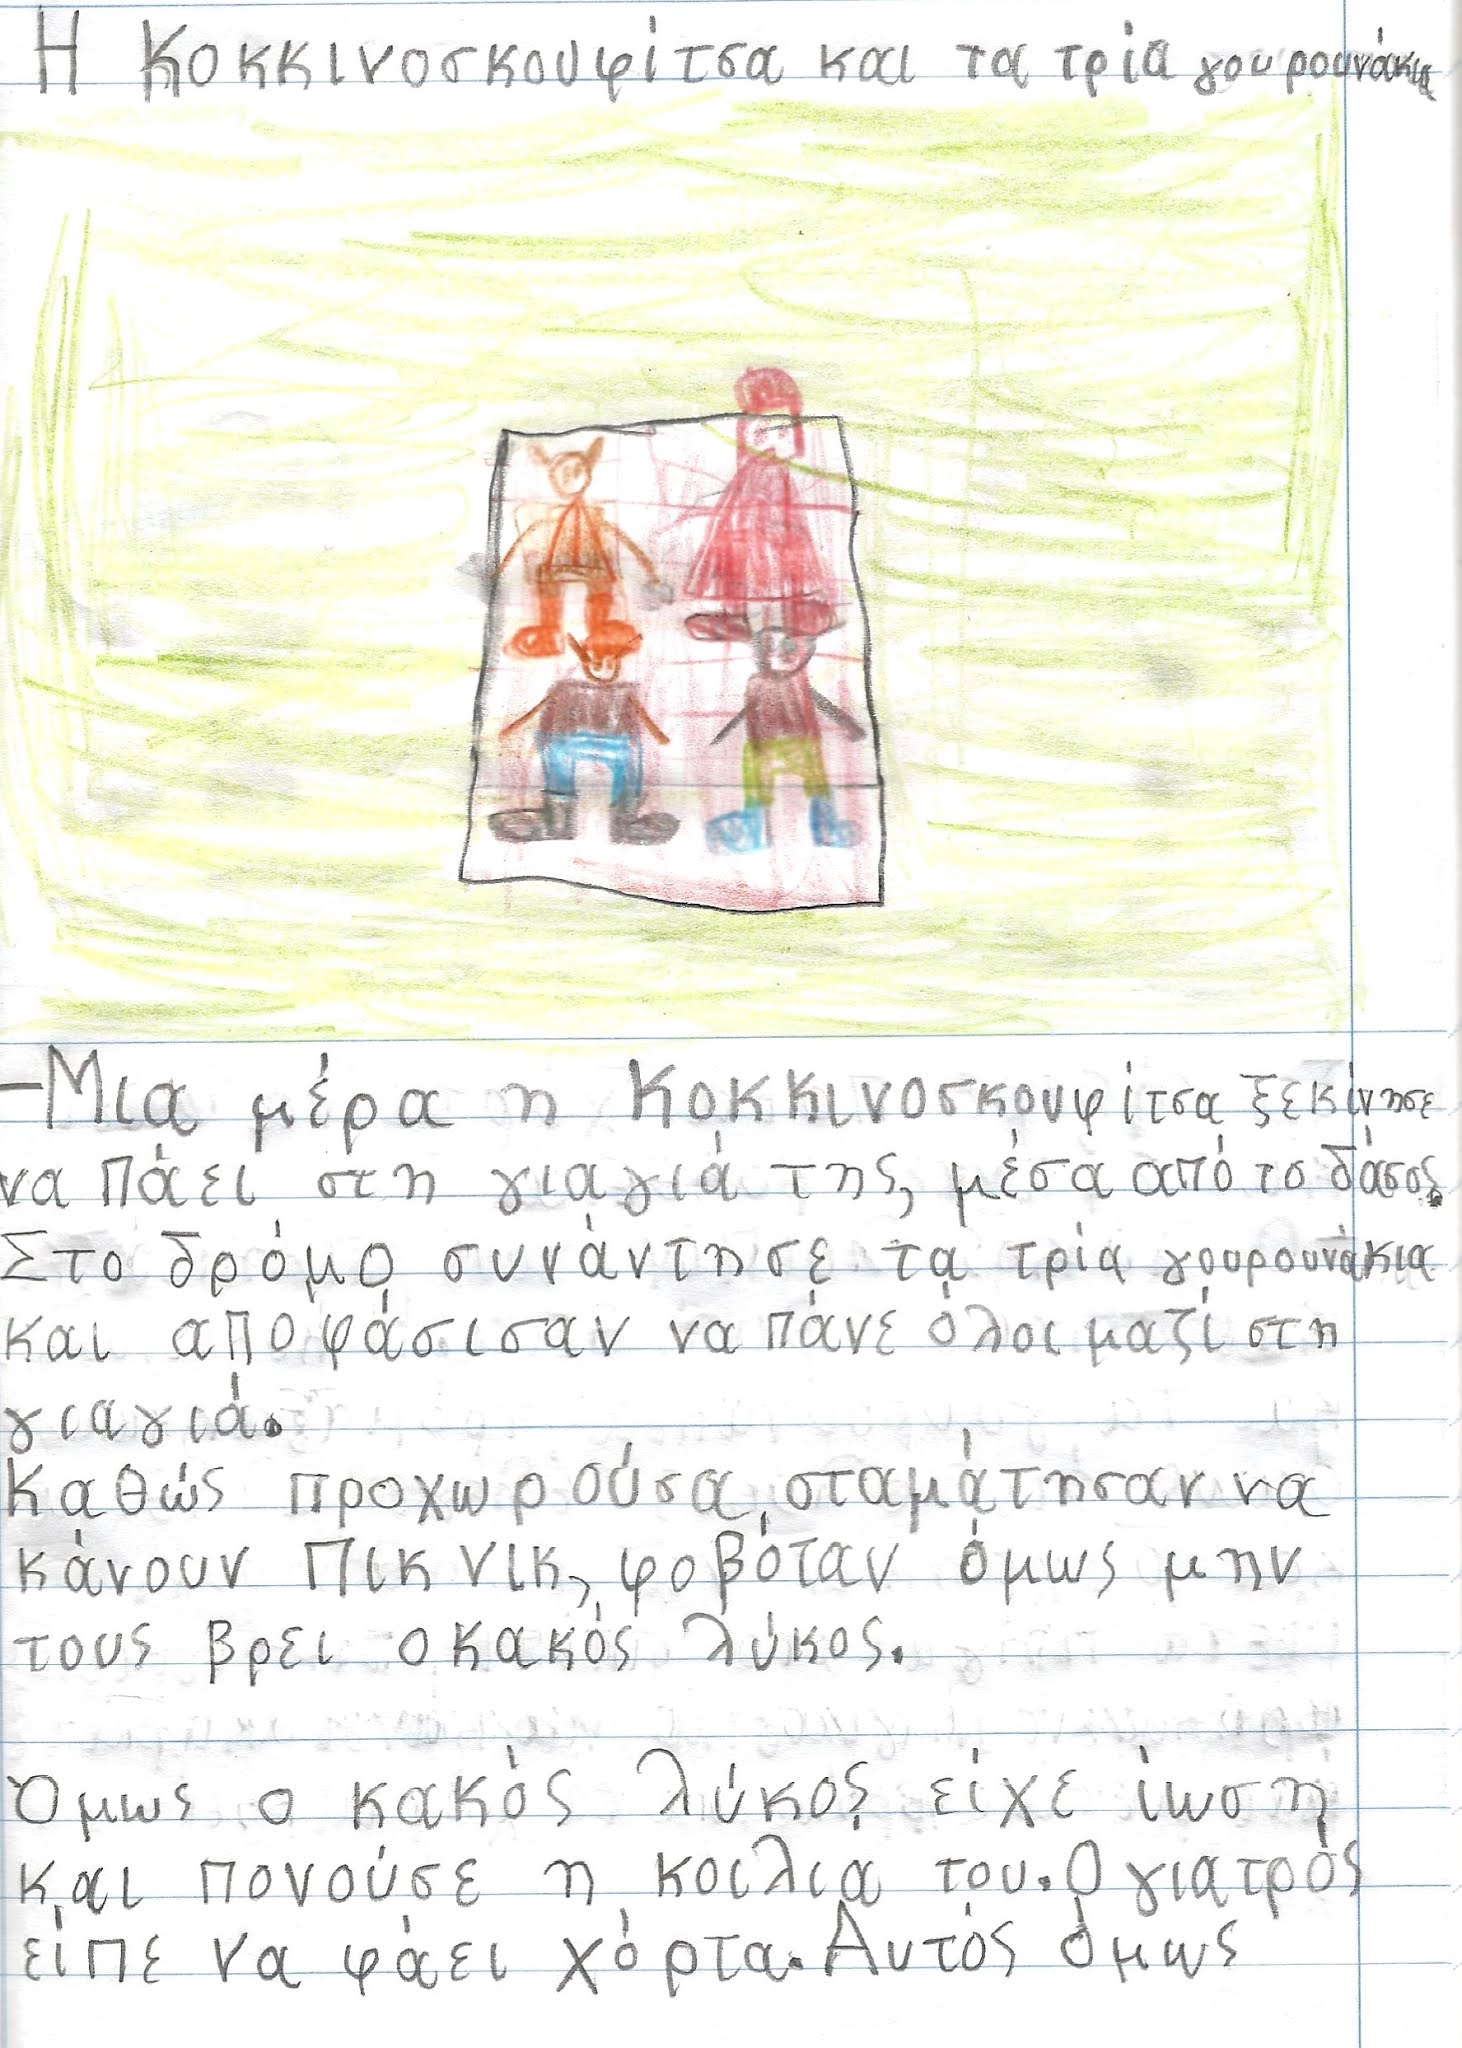 Η Κοκκινοσκουφίτσα και τα τρία γουρουνάκια
-Μια μέρα η Κοκκινοσκουφίτσα ξεκίνησε
να πάει στη γιαγιά της, μέσα από το δάσος.
Στο δρόμο συνάντησε τα τρία γουρουνάκια
και αποφάσισαν να πάνε όλοι μαζί στη
γιαγιά.
Καθώς προχωρούσα, σταμάτησαν να
κάνουν πικ νικ, φοβόταν όμως μην
τους βρει ο κακός λύκος.
Όμως ο κακός λύκος είχε ίωση
και πονούσε η κοιλια του. Ο γιατρός
είπε να φάει χόρτα. Αυτός όμως